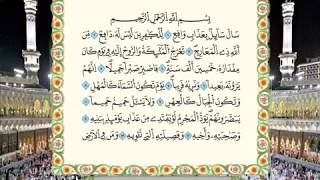 بِسْمِ اللَّهِ الرَّحْمَٰنِ الرَّحِيمِ
سَأَلَ سَائِلٌ بِعَذَابٍ وَاقِعٍ لِّلْكَافِرِينَ لَيْسَ لَهُ دَافِعٌ مِّنَ
اللَّهِ ذِي الْمَعَارِجِ تَعْرُجُ الْمَلَائِكَةُ وَالرُّوحُ إِلَيْهِ فِي يَوْمٍ كَانَ
مِقْدَارُهُ خَمْسِينَ أَلْفَ سَنَةٍ فَاصْبِرْ صَبْرًا جَمِيلًا إِنَّهُمْ
يَرَوْنَهُ بَعِيدًا وَنَرَاهُ قَرِيبًا يَوْمَ تَكُونُ السَّمَاءُ كَالْمُهْلِ
وَتَكُونُ الْجِبَالُ كَالْعِهْنِ وَلَا يَسْأَلُ حَمِيمٌ حَمِيمًا
يُبَصَّرُونَهُمْ يَوَدُّ الْمُجْرِمُ لَوْ يَفْتَدِي مِنْ عَذَابِ يَوْمِئِذٍ بِبَنِيهِ
وَصَاحِبَتِهِ وَأَخِيهِ وَفَصِيلَتِهِ الَّتِي تُؤْوِيهِ وَمَن فِي الْأَرْضِ